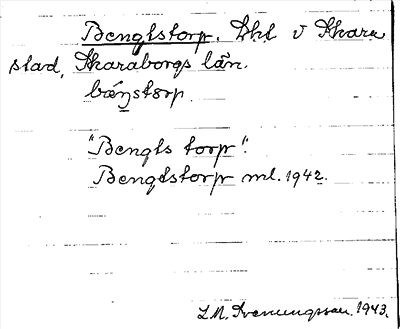 Bengtstorp. Lht v Skara
stad, Skaraborgs län.
bäŋstorp.
"Bengts torp".
Bengtstorp ml. 1942.
L.M. Svenungsson. 1943.